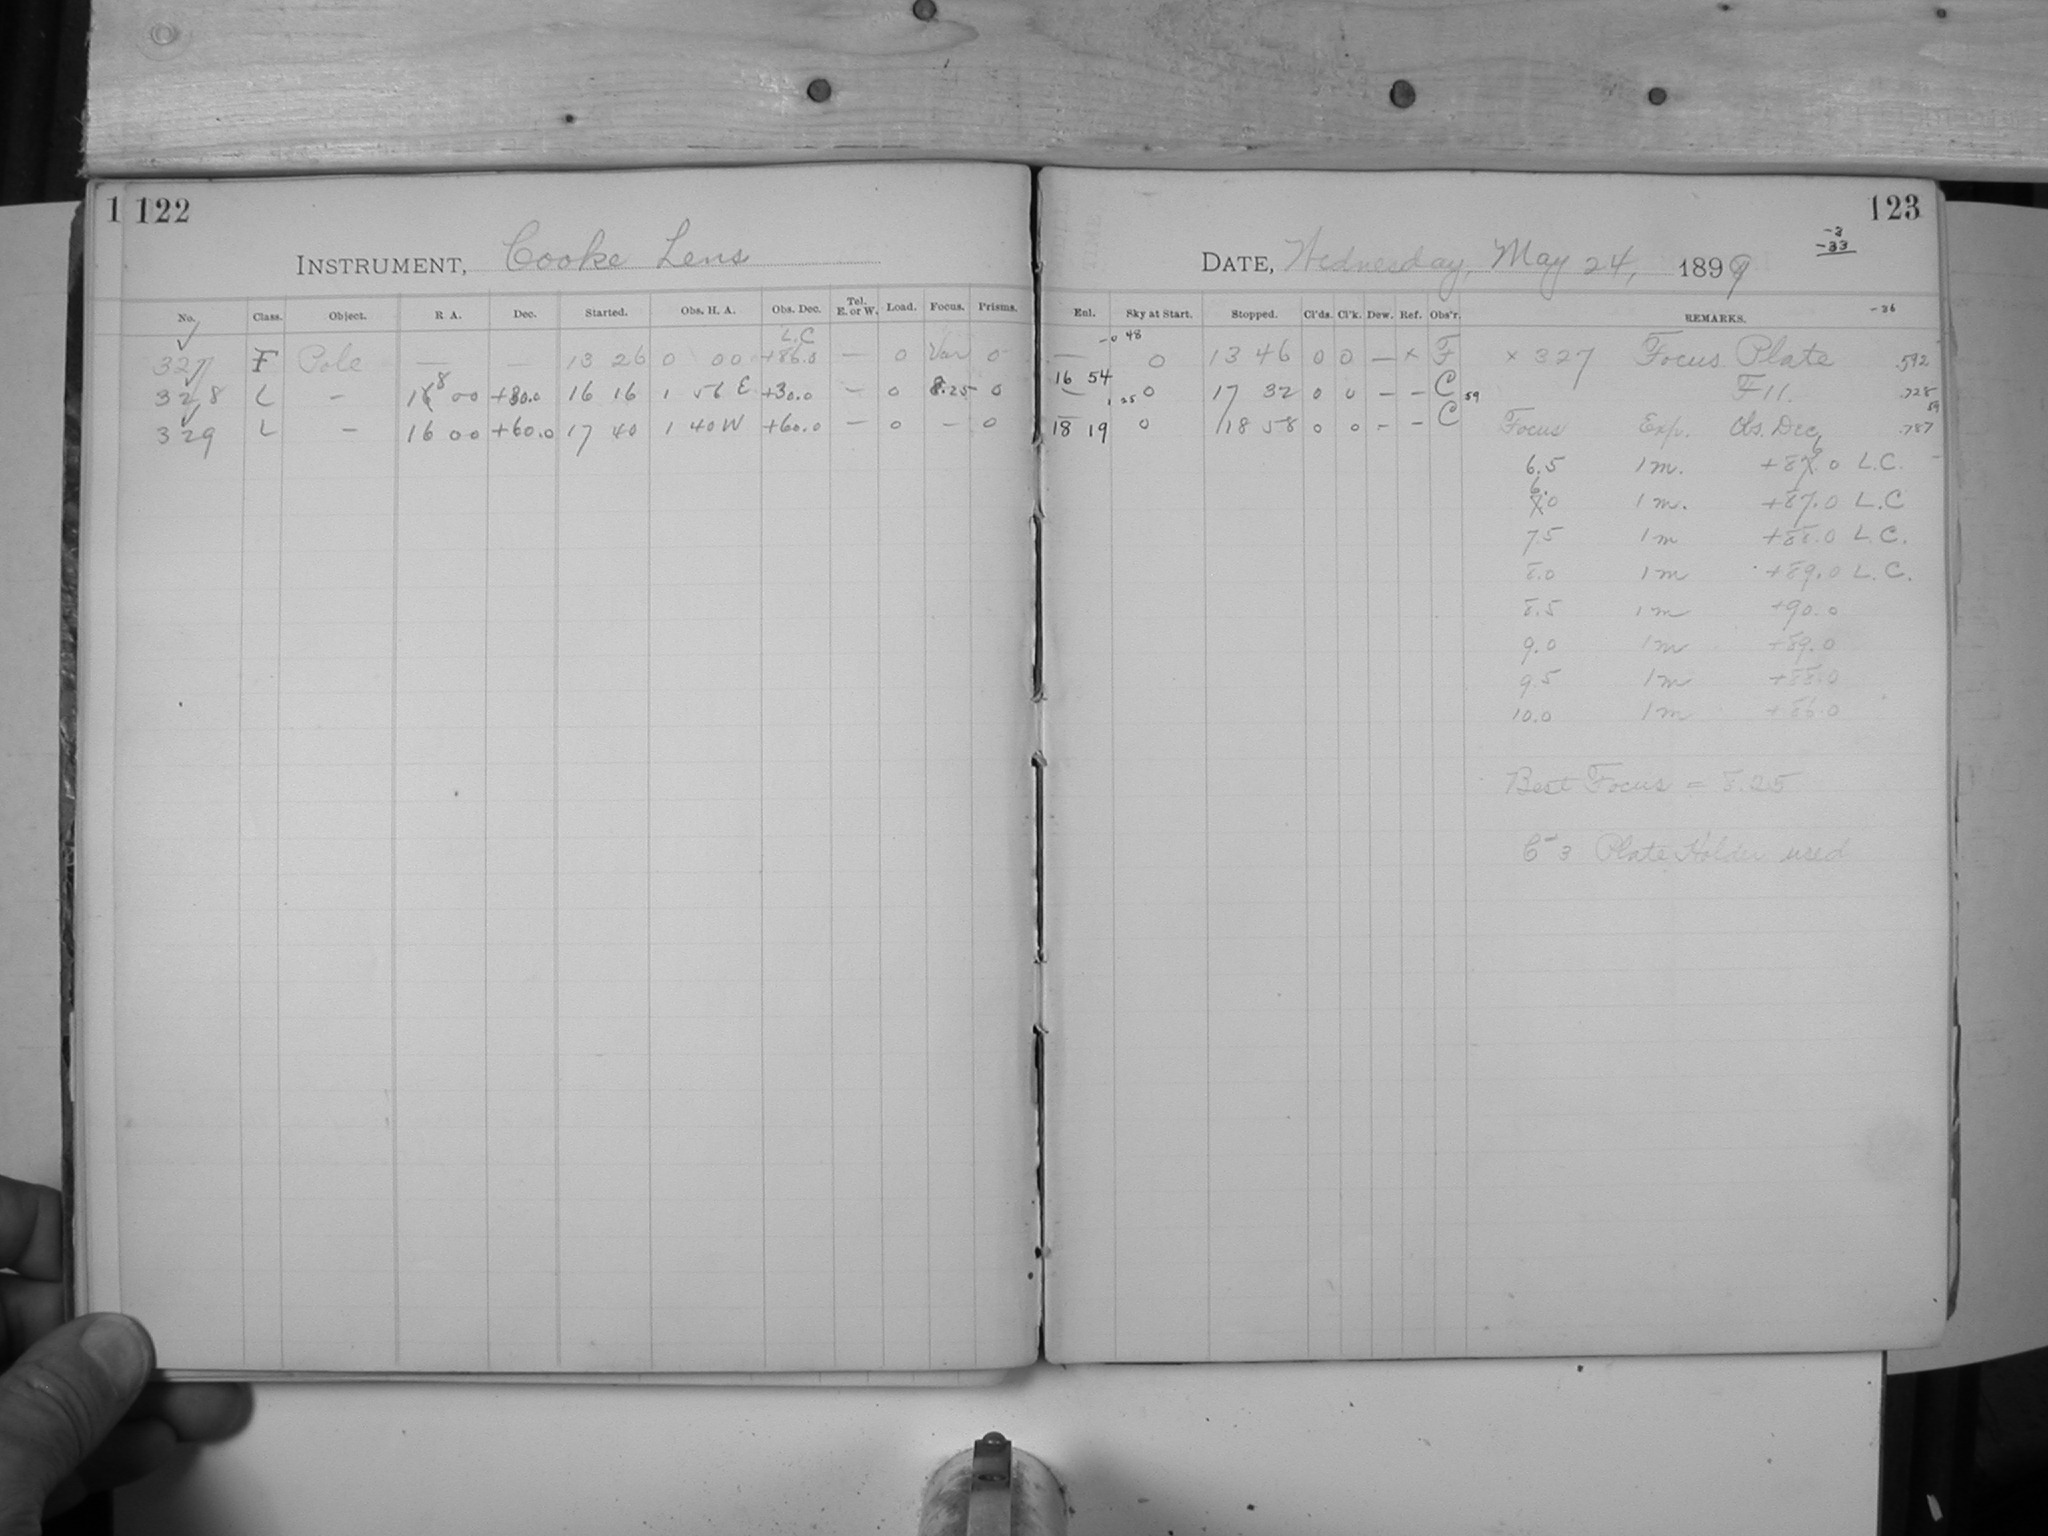 1 122
INSTRUMENT, Cooke Lens
No. Class. Object. R A. Dec. Started. Obs. H. A. Obs. Dec. Tel. E. or W. Load. Focus. Prisms.
L.C
327 F Pole — — 13 26 0 00 +86.0 — 0 Var 0
328 L — 18 00 +30.0 16 16 1 56 E +30.0 — 0 8.25 0
329 L — 16 00 +60.0 17 40 1 40 W +60.0 — 0 — 0
123
DATE, Wednesday, May 24, 1899
-3
-33
-36
Enl. Sky at Start. Stopped. Cl'ds. Cl'k. Dew. Ref. Obs'r. REMARKS.
-0 48
— 0 13 46 0 0 — x F x 327 Focus Plate .592
16 54
— 0 17 32 0 0 — — C 59 F 11. .728
1 25
59
18 19 0 18 58 0 0 — — C Focus Exp. Obs. Dec. .787
6.5 1 m. +86.0 L.C.
6.0 1 m. +87.0 L.C
7.5 1 m +88.0 L.C.
8.0 1 m +89.0 L.C.
8.5 1 m +90.0
9.0 1 m +89.0
9.5 1 m +88.0
10.0 1 m +86.0
Best Focus = 8.25
3 Plate Holder used